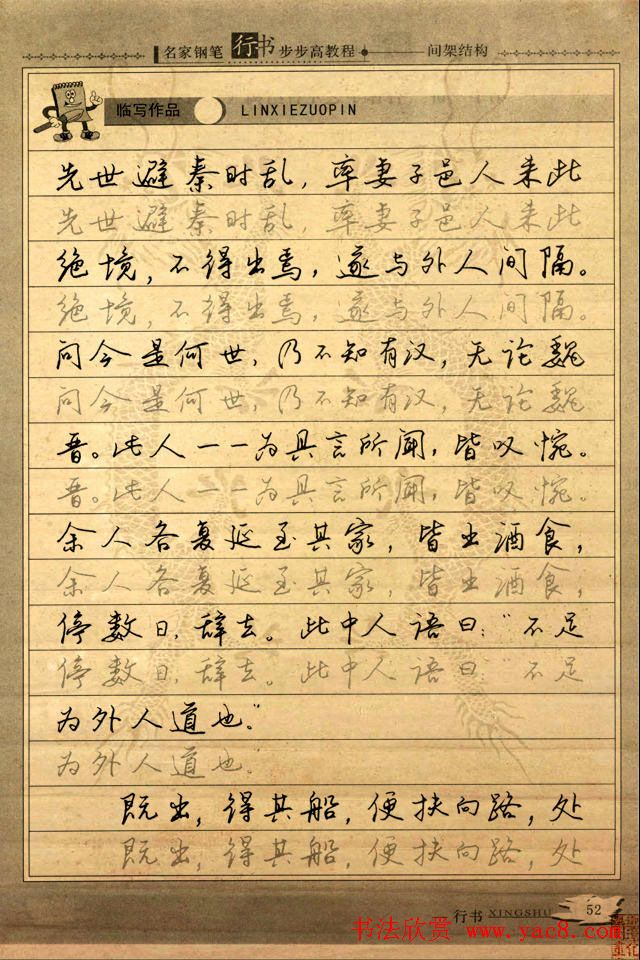 名家钢笔 行书 步步高教程 间架结构
临写作品 LINXIEZUOPIN
先世避秦时乱，率妻子邑人来此
先世避秦时乱，率妻子邑人来此
绝境，不得出焉，遂与外人间隔。
绝境，不得出焉，遂与外人间隔。
问今是何世，乃不知有汉，无论魏
问今是何世，乃不知有汉，无论魏
晋。此人一一为具言所闻，皆叹惋。
晋。此人一一为具言所闻，皆叹惋。
余人各复延至其家，皆出酒食，
余人各复延至其家，皆出酒食，
停数日，辞去。此中人语曰：“不足
停数日，辞去。此中人语曰：“不足
为外人道也。”
为外人道也。”
既出，得其船，便扶向路，处
既出，得其船，便扶向路，处
行书 XINGSHU 52
书法欣赏 www.yac8.com